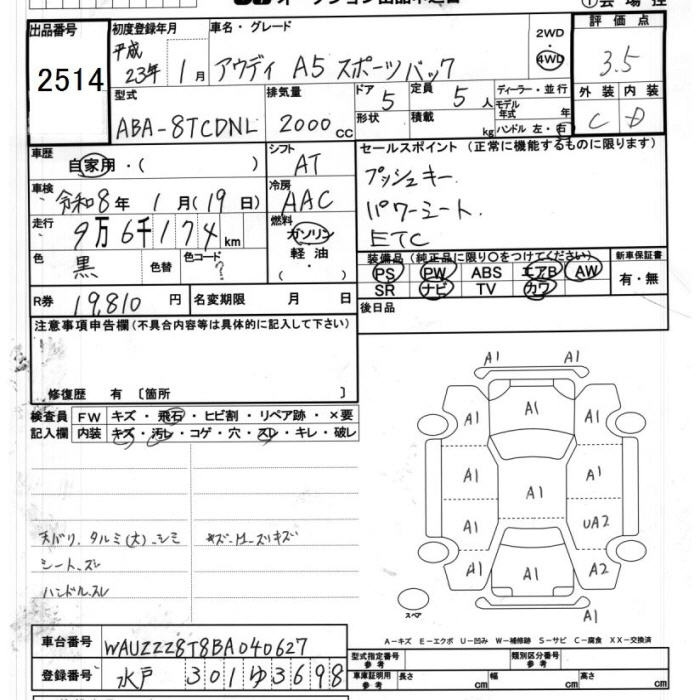 オークション出品申込書
出品番号 2514
初度登録年月 平成 23年 1月
車名・グレード アウディ A5 スポーツバック
2WD
4WD
評価点 3.5
外装 内装
C D
型式 ABA-8TCDNL
排気量 2000 cc
ドア 5 定員 5 人
形状 積載 kg
ディーラー・並行
モデル年式 年
ハンドル 左・右
車歴 自家用・( )
シフト AT
車検 令和8年 1月(19日)
冷房 AAC
走行 9万6千174 km
燃料 ガソリン
軽油
色 黒 色替 色コード ?
R券 19,810 円 名変期限 月 日
セールスポイント (正常に機能するものに限ります)
プッシュキー.
パワーシート.
ETC
装備品(純正品に限り○をつけてください)
新車保証書
PS PW ABS エアB AW
有・無
SR ナビ TV カワ
後日品
注意事項申告欄(不具合内容等は具体的に記入して下さい)
修復歴 有 〔箇所 〕
検査員 FW キズ・飛石・ヒビ割・リペア跡・×要
記入欄 内装 キズ・汚レ・コゲ・穴・スレ・キレ・破レ
天バリ, タルミ(大)・シミ
シート.スレ
ハンドル.スレ
A1 A1
A1 A1 A1
A1 A1
A1
A1 UA2
A1 A1 A2
A1
スペア
A−キズ E−エクボ U−凹み W−補修跡 S−サビ C−腐食 XX−交換済
車台番号 WAUZZZ8T8BA040627
登録番号 水戸 301 ゆ 3698
型式指定番号 参考
類別区分番号 参考
車庫証明用 参考 長さ cm 幅 cm 高さ cm